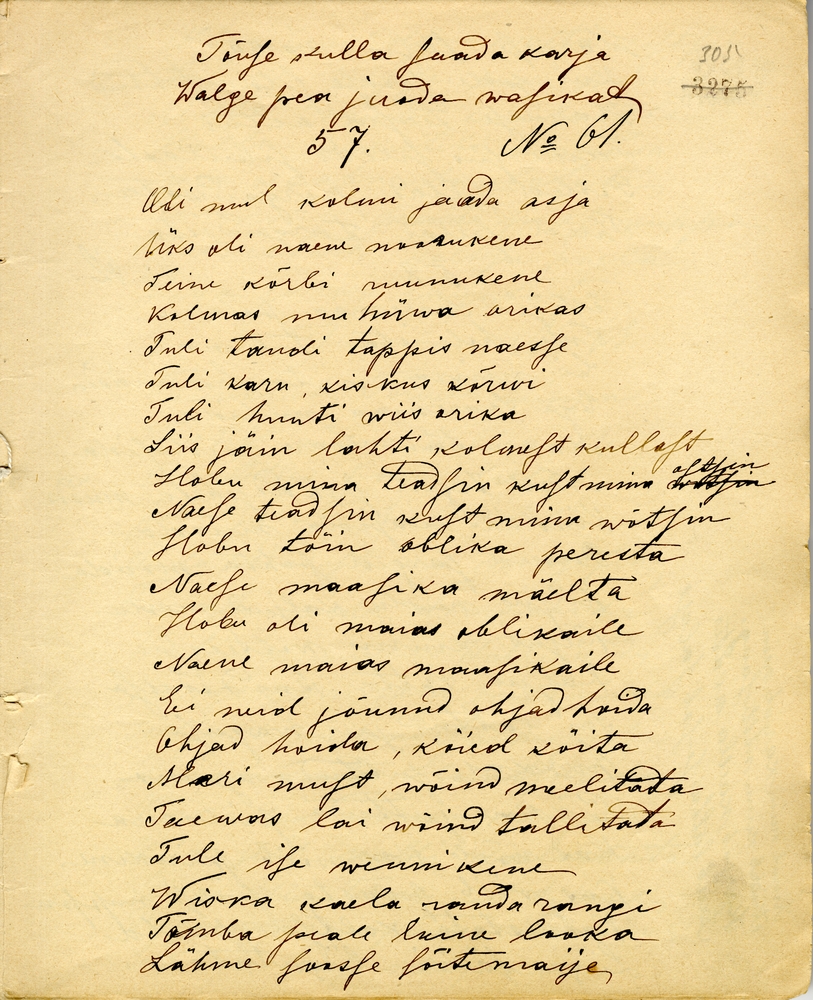 Tõuse kulla saada karja
Walge pea juoda wasikad
305
3275
57. No 61.
Oli mul kolmi jaada asja
Üks oli naene noorukene
Teine kõrbi ruunukene
Kolmas mu hüwa orikas
Tuli taudi tappis naesse
Tuli karu, kiskus kõrwi
Tuli hunti wiis orika
Siis jäin lahti kolmest kullast
Hobu mina teadsin kust mina ostsin
Naese teadsin kust mina wõtsin
Hobu tõin oblika peresta
Naese maasika mäelta
Hobu oli maias oblikaile
Naene maias maasikaile
Ei neid jõunud ohjad hoida
Ohjad hoida, köied köita
Meri must, wõind meelitada
Taewas lai wõind tallitada
Tule ise wennikene
Wiska kaela rauda rangi
Tõmba peale luine looka
Lähme soosse sõitemaije